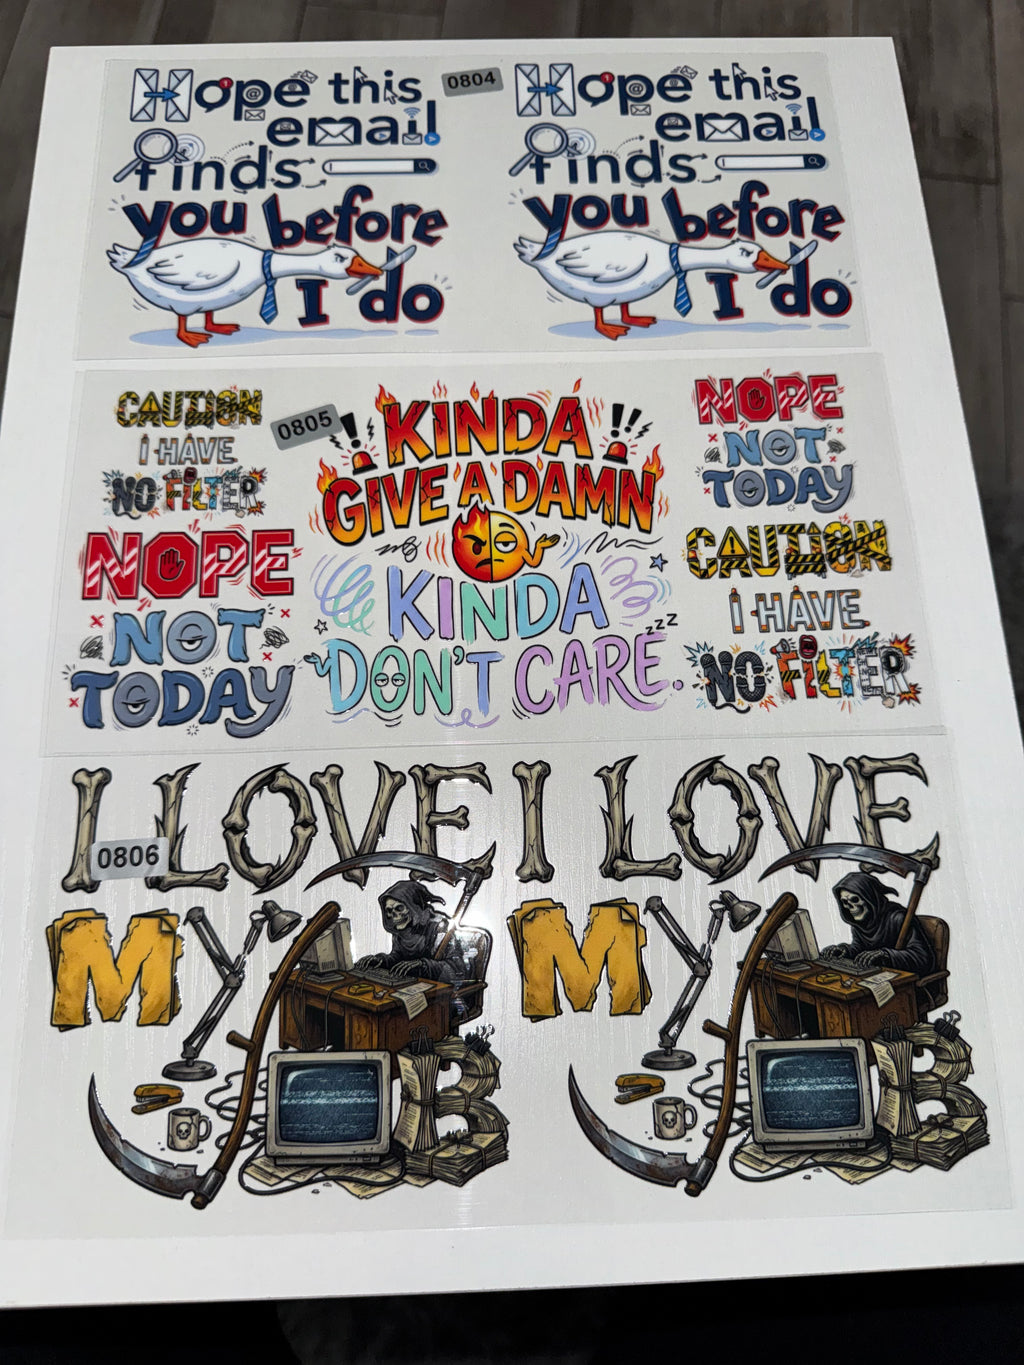 Hope this
email
finds
you before
I do
0804
Hope this
email
finds
you before
I do
CAUTION
I HAVE
NO FILTER
NOPE
NOT
TODAY
0805
KINDA
GIVE A DAMN
KINDA
DON'T CARE.
zzz
NOPE
NOT
TODAY
CAUTION
I HAVE
NO FILTER
I LOVE
0806
MY
JOB
I LOVE
MY
JOB